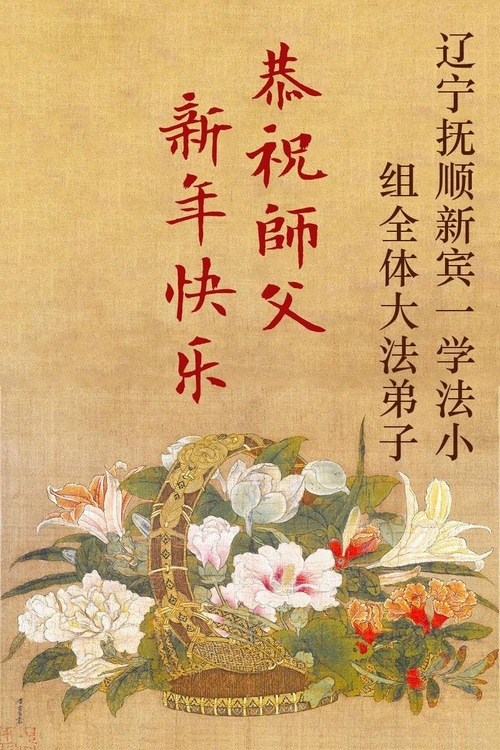 辽宁抚顺新宾一学法小
组全体大法弟子
恭祝師父
新年快乐